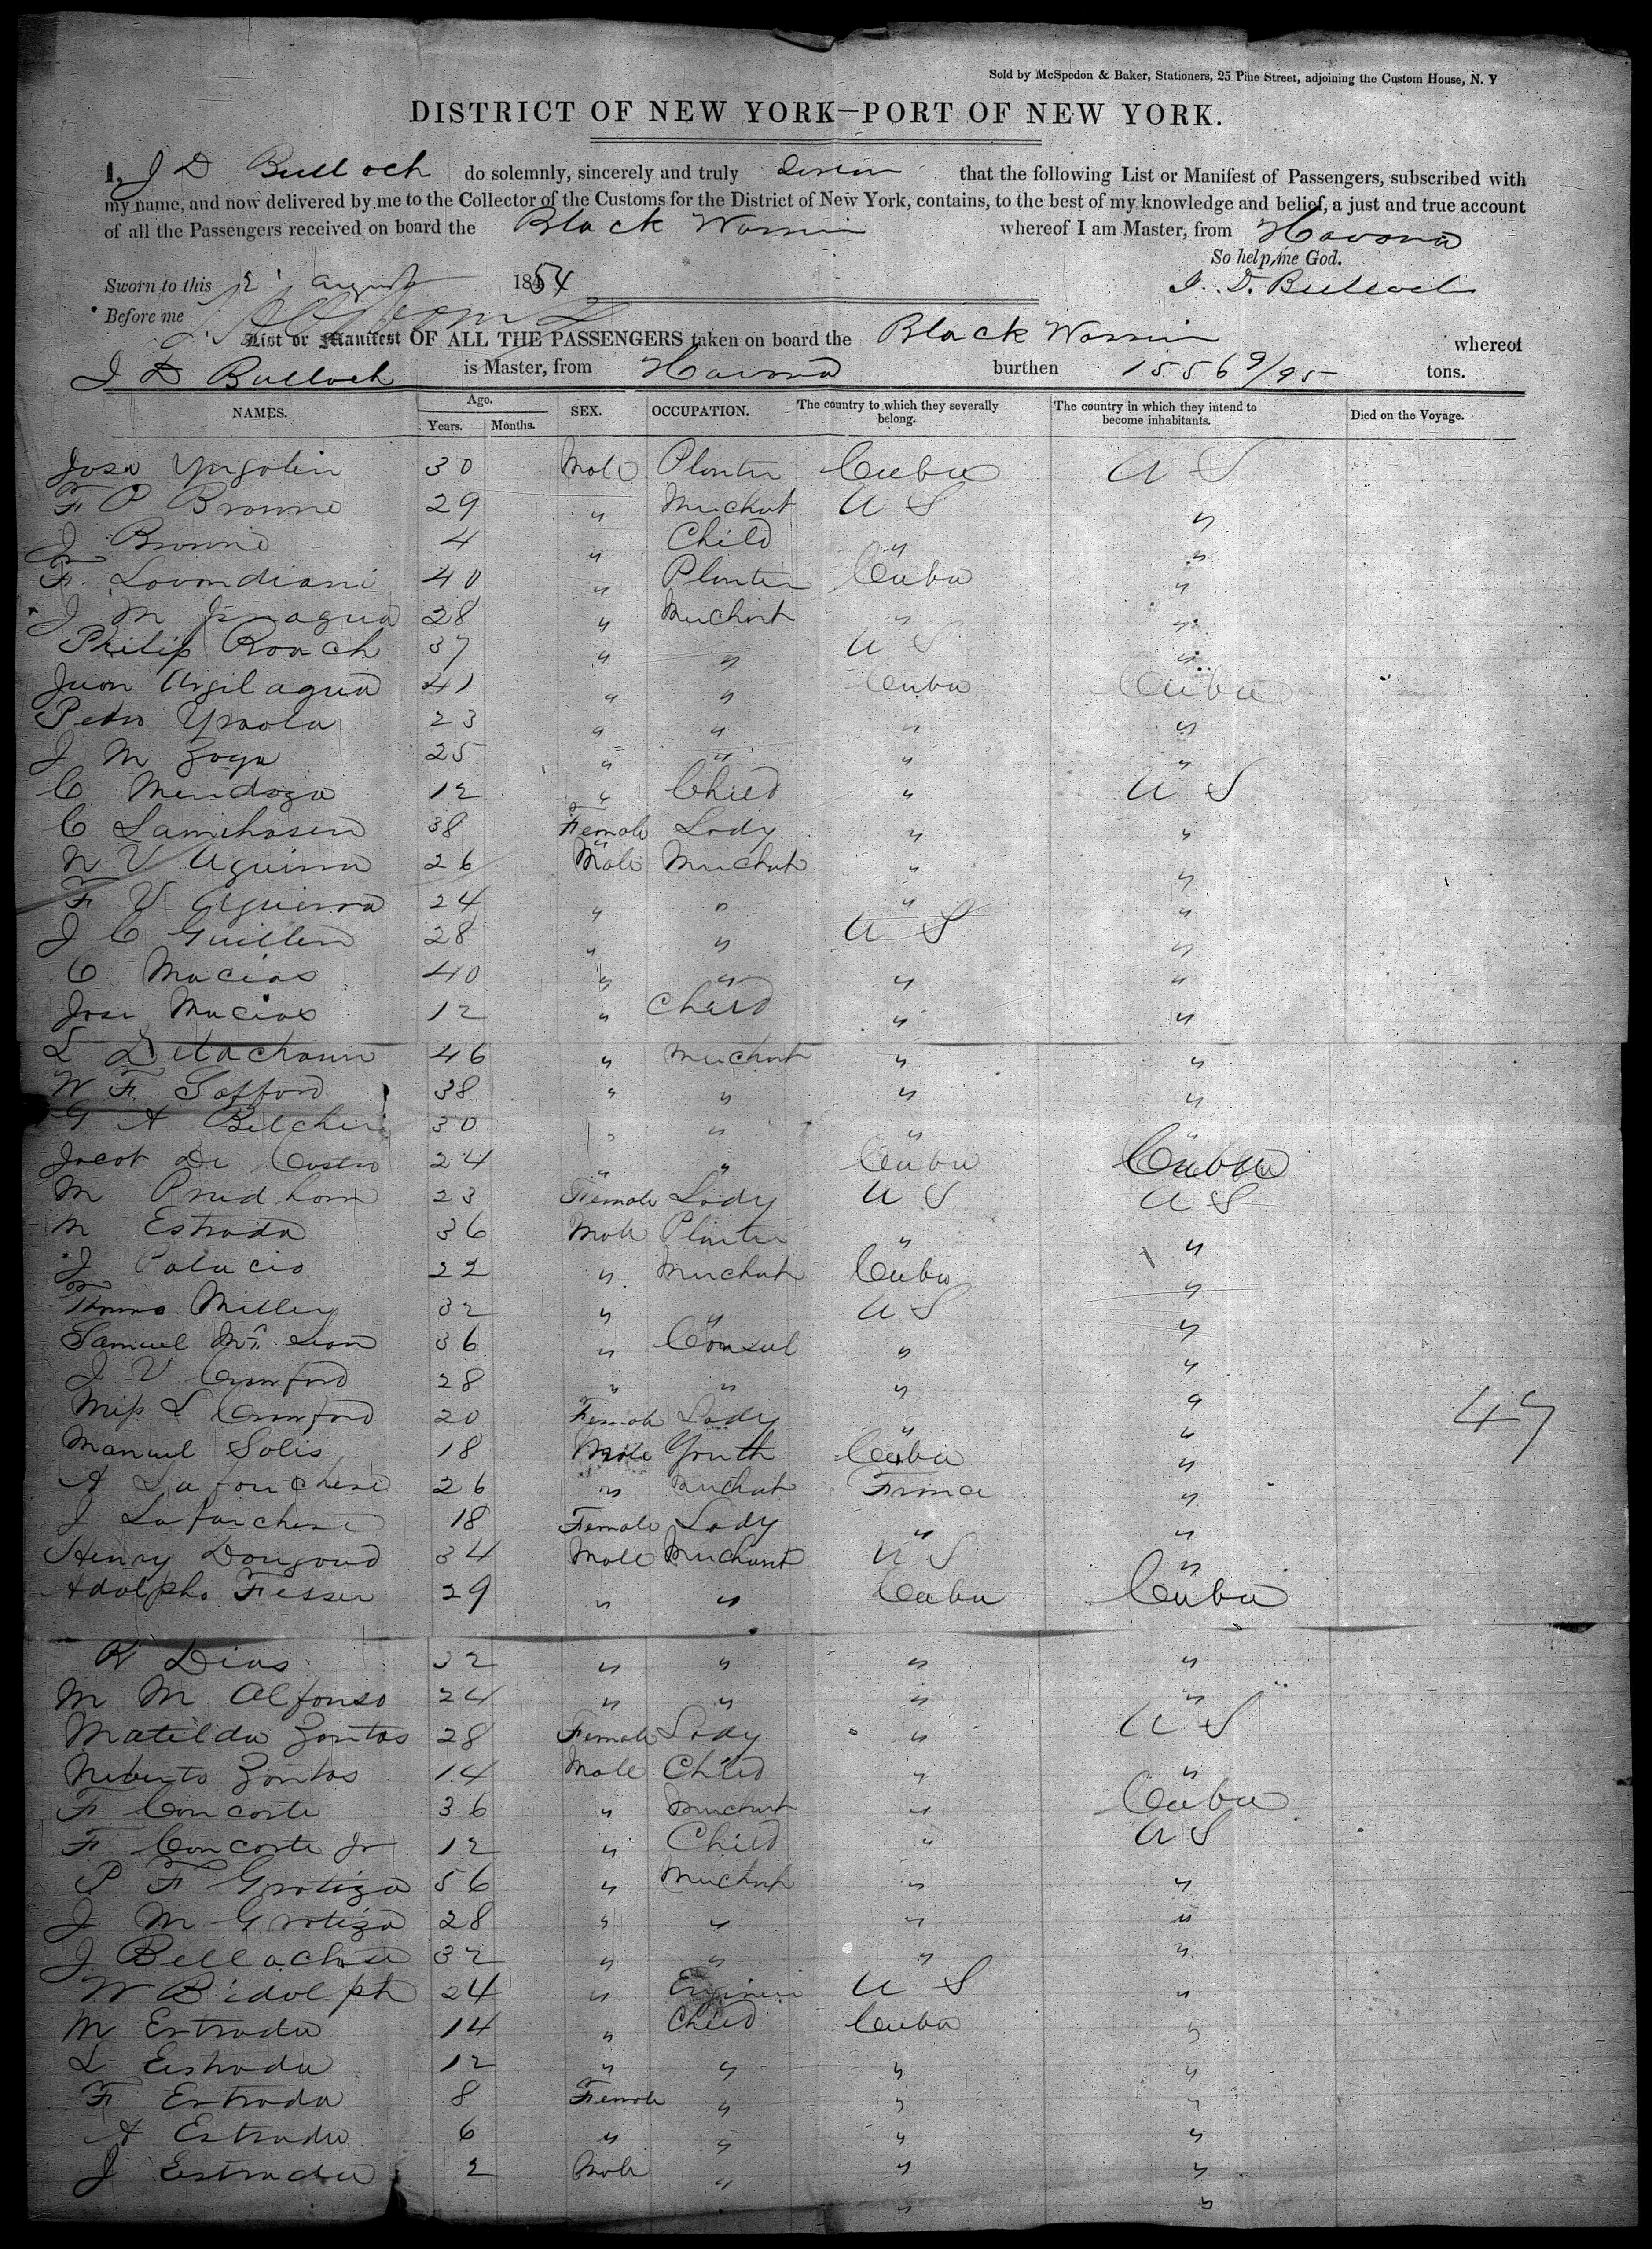 Sold by McSpedon & Baker, Stationers, 25 Pine Street, adjoining the Custom House, N. Y
DISTRICT OF NEW YORK—PORT OF NEW YORK.
I, J D Bulloch do solemnly, sincerely and truly swear that the following List or Manifest of Passengers, subscribed with
my name, and now delivered by me to the Collector of the Customs for the District of New York, contains, to the best of my knowledge and belief, a just and true account
of all the Passengers received on board the Black Warrior whereof I am Master, from Havana
So help me God.
Sworn to this 2 August 1854 J. D. Bulloch
Before me
List or Manifest OF ALL THE PASSENGERS taken on board the Black Warrior whereof
J D Bulloch is Master, from Havana burthen 1556 9/95 tons.
NAMES. Age. Years. Months. SEX. OCCUPATION. The country to which they severally belong. The country in which they intend to become inhabitants. Died on the Voyage.
Jose 30 Male Planter Cuba U S
F P Browne 29 " Merchant U S "
J Browne 4 " Child " "
F. 40 " Planter Cuba "
J M 28 " Merchant " "
Philip Roach 37 " " U S "
Juan 41 " " Cuba Cuba
Pedro 23 " " " "
J M Zoya 25 " " " "
C Mendoza 12 " Child " U S
C 38 Female Lady " "
N V Aguirra 26 Male Merchant " "
F V Aguirra 24 " " " "
J C Guillen 28 " " U S "
C Macias 40 " " " "
Jose Macias 12 " Child " "
L 46 " Merchant " "
W F Safford 38 " " " "
G A Belcher 30 " " " "
Jacob De Castro 24 " " Cuba Cuba
M Prudhom 23 Female Lady U S U S
M Estrada 36 Male Planter " "
J Palacio 22 " Merchant Cuba "
Thomas Miller 32 " " U S "
Samuel 36 " Consul " "
J V Crawford 28 " " " "
Miss L Crawford 20 Female Lady " " 47
Manuel Solis 18 Male Youth Cuba "
A Lafourchese 26 " Merchant France "
J Lafourchese 18 Female Lady " "
Henry 34 Male Merchant U S "
Adolpho Fesser 29 " " Cuba Cuba
R Dias 32 " " " "
M M Alfonso 24 " " " "
Matilda Zontos 28 Female Lady " U S
Zontos 14 Male Child " "
F Concorte 36 " Merchant " Cuba
F Concorte Jr 12 " Child " U S
P F Grotiza 56 " Merchant " "
J M Grotiza 28 " " " "
J 32 " " " "
W Bidolph 24 " Engineer U S "
M Estrada 14 " Child Cuba "
L Estrada 12 " " " "
F Estrada 8 Female " " "
A Estrada 6 " " " "
J Estrada 2 Male " " "
" "